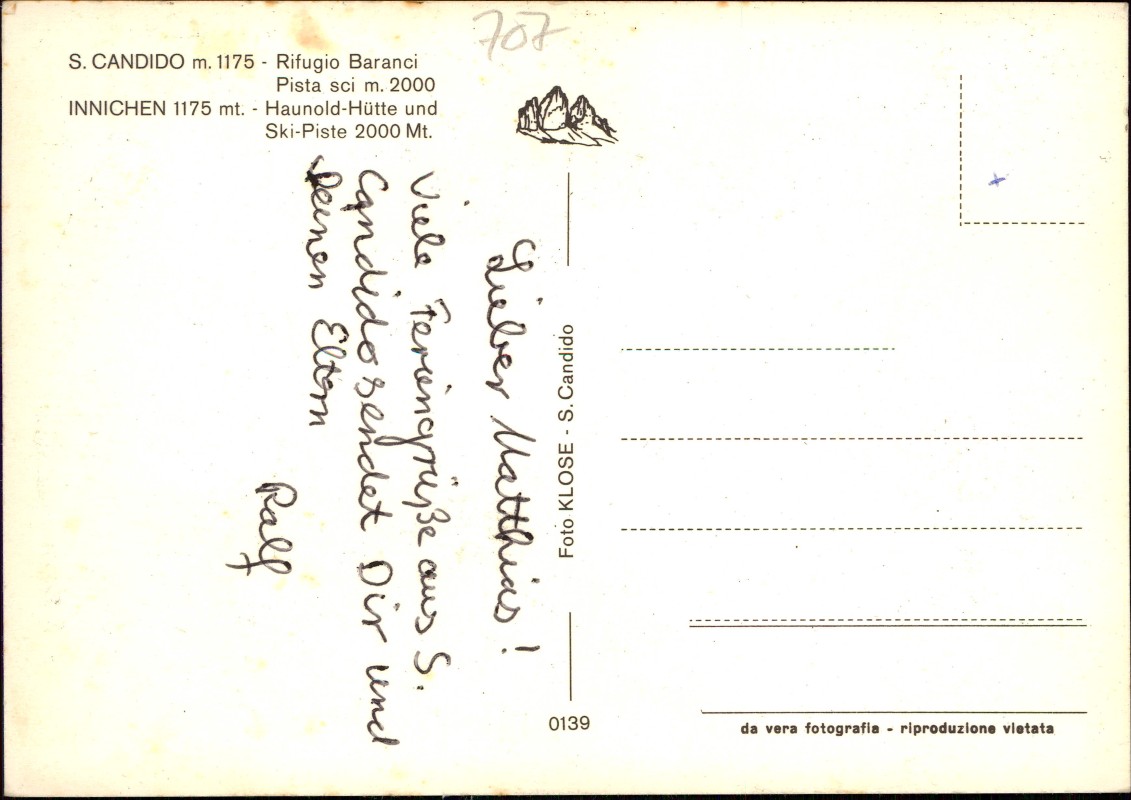 707
S. CANDIDO m. 1175 - Rifugio Baranci
Pista sci m. 2000
INNICHEN 1175 mt. - Haunold-Hütte und
Ski-Piste 2000 Mt.
Lieber Matthias!
Viele Feriengrüße aus S.
Candido sendet Dir und
Deinen Eltern
Ralf
Foto KLOSE - S. Candido
0139
da vera fotografia - riproduzione vietata